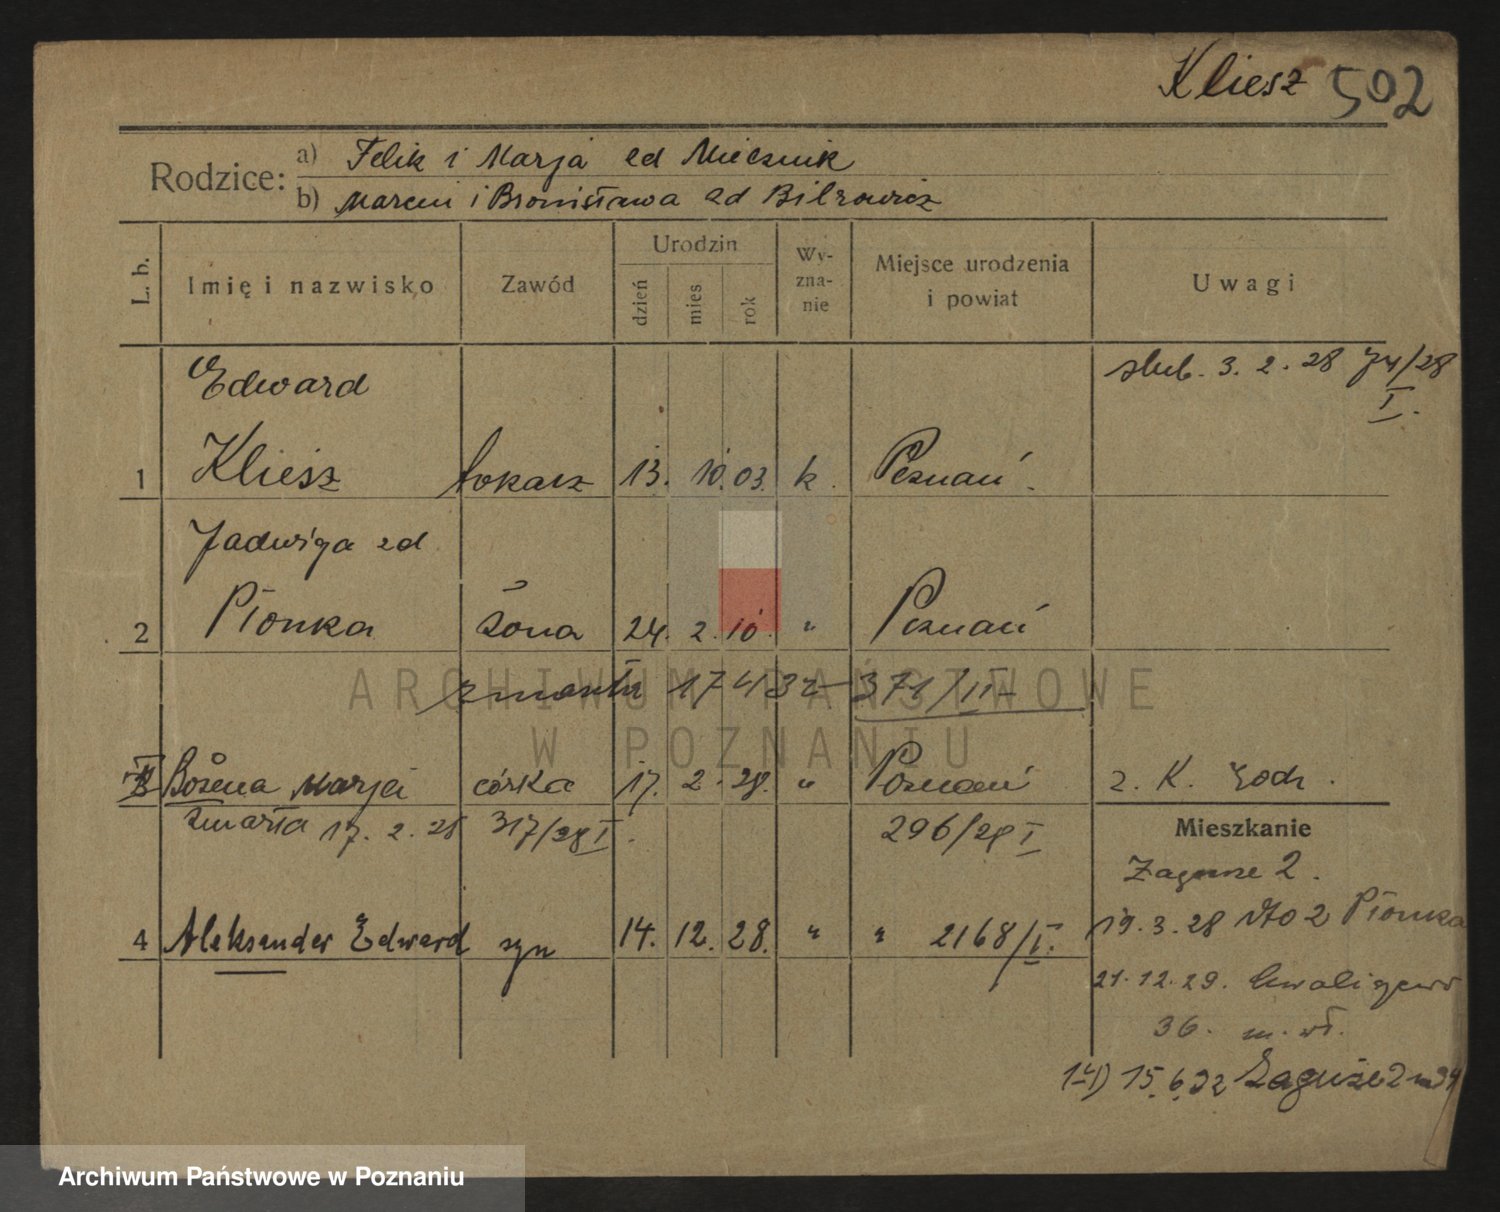 Kliesz 502
Rodzice: a) Felik i Marja zd Miecznik
b) Marcin i Bronisława zd Bilzowicz
L. b. Imię i nazwisko Zawód Urodzin dzień mies rok Wy-zna-nie Miejsce urodzenia i powiat Uwagi
Edward ślub. 3. 2. 28 74/28 I.
1 Kliesz tokarz 13. 10. 03. k. Poznań.
Jadwiga zd
2 Pionka żona 24. 2. 10. " Poznań
zmarła 17 4 32 371/II
Bożena Marja córka 17. 2. 28. " Poznań 2. K. rodz.
zmarła 17. 2. 28 317/28 I. 296/28 I
Mieszkanie
Zagórze 2.
4 Aleksander Edward syn 14. 12. 28. " " 2168/I.
19. 3. 28 2 Pionka
21. 12. 29. Chwaliszewo
36. m. wł.
15. 6. 32 Zagórze 2
ARCHIWUM PAŃSTWOWE
W POZNANIU
Archiwum Państwowe w Poznaniu